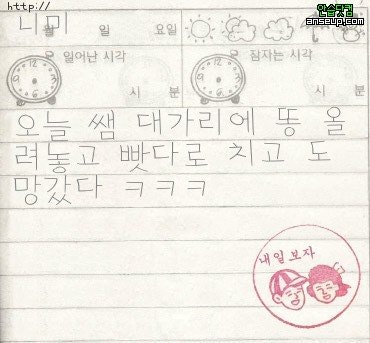 http://
안습닷컴
anseup.com
니미 일 요일
일어난 시각 잠자는 시각
시 분 시 분
오늘 쌤 대가리에 똥 올
려놓고 빳다로 치고 도
망갔다 ㅋㅋㅋ
내일 보자